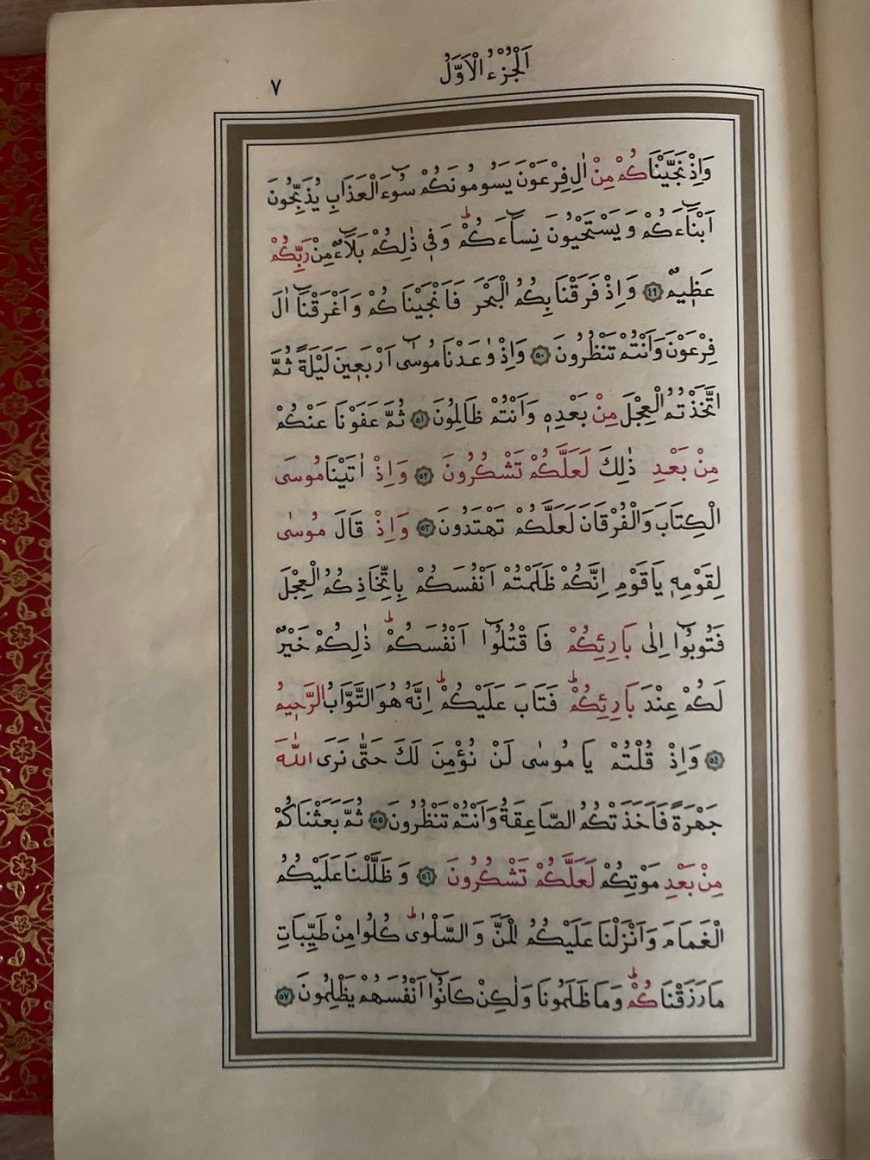 اَلْجُزْءُ الْاَوَّلُ
٧
وَاِذْ نَجَّيْنَاكُمْ مِنْ اٰلِ فِرْعَوْنَ يَسُومُونَكُمْ سُٓوءَ الْعَذَابِ يُذَبِّحُونَ
اَبْنَٓاءَكُمْ وَيَسْتَحْيُونَ نِسَٓاءَكُمْۜ وَفٖي ذٰلِكُمْ بَلَٓاءٌ مِنْ رَبِّكُمْ
عَظٖيمٌ ﴿٤٩﴾ وَاِذْ فَرَقْنَا بِكُمُ الْبَحْرَ فَاَنْجَيْنَاكُمْ وَاَغْرَقْنَٓا اٰلَ
فِرْعَوْنَ وَاَنْتُمْ تَنْظُرُونَ ﴿٥٠﴾ وَاِذْ وٰعَدْنَا مُوسٰٓى اَرْبَعٖينَ لَيْلَةً ثُمَّ
اتَّخَذْتُمُ الْعِجْلَ مِنْ بَعْدِهٖ وَاَنْتُمْ ظَالِمُونَ ﴿٥١﴾ ثُمَّ عَفَوْنَا عَنْكُمْ
مِنْ بَعْدِ ذٰلِكَ لَعَلَّكُمْ تَشْكُرُونَ ﴿٥٢﴾ وَاِذْ اٰتَيْنَا مُوسَى
الْكِتَابَ وَالْفُرْقَانَ لَعَلَّكُمْ تَهْتَدُونَ ﴿٥٣﴾ وَاِذْ قَالَ مُوسٰى
لِقَوْمِهٖ يَا قَوْمِ اِنَّكُمْ ظَلَمْتُمْ اَنْفُسَكُمْ بِاتِّخَاذِكُمُ الْعِجْلَ
فَتُوبُٓوا اِلٰى بَارِئِكُمْ فَاقْتُلُٓوا اَنْفُسَكُمْۜ ذٰلِكُمْ خَيْرٌ
لَكُمْ عِنْدَ بَارِئِكُمْۜ فَتَابَ عَلَيْكُمْۜ اِنَّهُ هُوَ التَّوَّابُ الرَّحٖيمُ
﴿٥٤﴾ وَاِذْ قُلْتُمْ يَا مُوسٰى لَنْ نُؤْمِنَ لَكَ حَتّٰى نَرَى اللّٰهَ
جَهْرَةً فَاَخَذَتْكُمُ الصَّاعِقَةُ وَاَنْتُمْ تَنْظُرُونَ ﴿٥٥﴾ ثُمَّ بَعَثْنَاكُمْ
مِنْ بَعْدِ مَوْتِكُمْ لَعَلَّكُمْ تَشْكُرُونَ ﴿٥٦﴾ وَظَلَّلْنَا عَلَيْكُمُ
الْغَمَامَ وَاَنْزَلْنَا عَلَيْكُمُ الْمَنَّ وَالسَّلْوٰىۜ كُلُوا مِنْ طَيِّبَاتِ
مَا رَزَقْنَاكُمْۜ وَمَا ظَلَمُونَا وَلٰكِنْ كَانُٓوا اَنْفُسَهُمْ يَظْلِمُونَ ﴿٥٧﴾